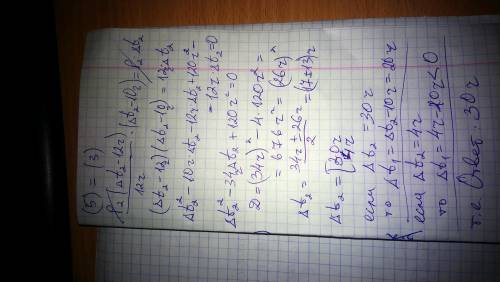 (5) = (3)
P₂(Δt₂-12ч)/12ч · (Δt₂-10ч) = P₂ Δt₂
(Δt₂-12ч)(Δt₂-10ч) = 12ч Δt₂
Δt₂² - 10ч Δt₂ - 12ч Δt₂ + 120ч² -
- 12ч Δt₂ = 0
Δt₂² - 34ч Δt₂ + 120ч² = 0
D = (34ч)² - 4·120ч² =
= 676ч² = (26ч)²
Δt₂ = (34ч ± 26ч)/2 = (17±13)ч
Δt₂ = [30ч
4ч
если Δt₂ = 30ч
то Δt₁ = Δt₂ - 10ч = 20ч
если Δt₂ = 4ч
то Δt₁ = 4ч - 10ч < 0
т.е. Ответ: 30ч